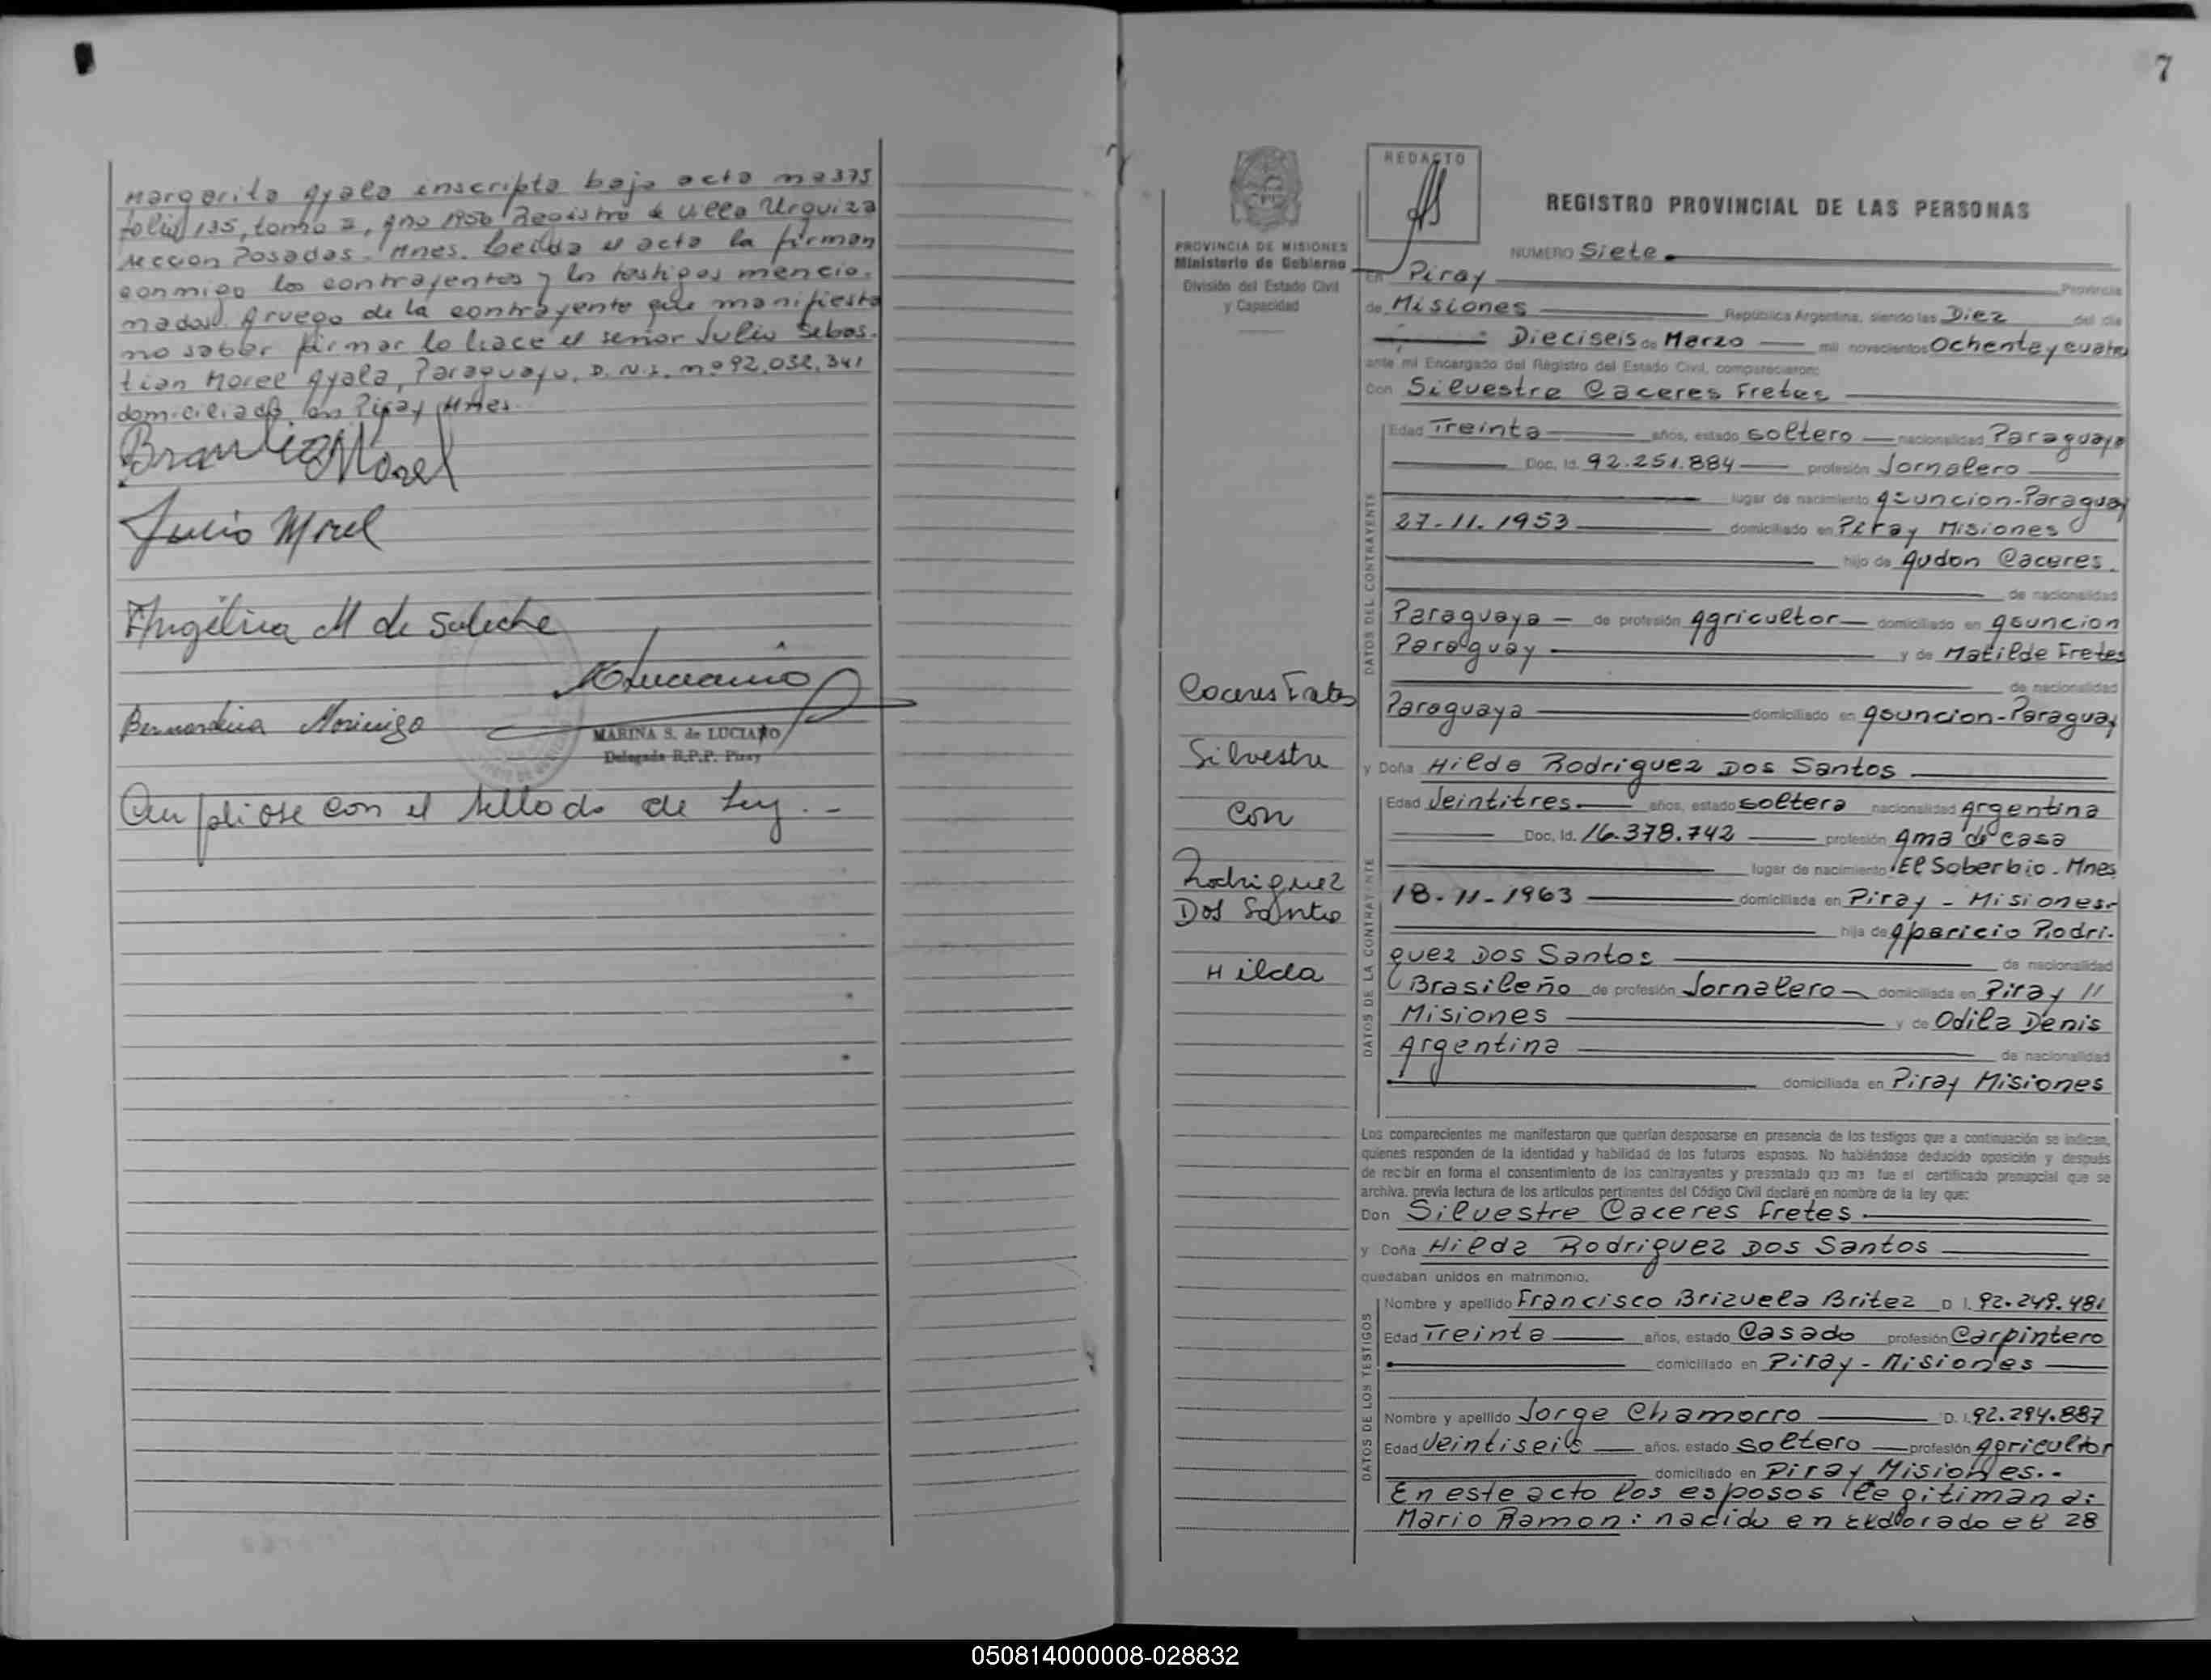 Margarita Ayala inscripta bajo acta nº 375
folio 135, tomo 2, año 1956 Registro de Villa Urquiza
seccion Posadas. Mnes. Leida el acta la firman
conmigo los contrayentes y los testigos mencio.
nados. A ruego de la contrayente que manifiesta
no saber firmar lo hace el señor Julio Sebas.
tian Morel Ayala, Paraguayo, D.N.I. nº 92.032.341
domiciliado en Piray Mnes.
Braulio Morel
Julio Morel
Angélica M de Suleche
Bernardina Morinigo
MARINA S. de LUCIANO
Delegada R.P.P. Piray
Ampliose con el sellado de Ley.-
7
REDACTO
PROVINCIA DE MISIONES
Ministerio de Gobierno
División del Estado Civil
y Capacidad
REGISTRO PROVINCIAL DE LAS PERSONAS
NUMERO Siete.
EN Piray Provincia
de Misiones República Argentina, siendo las Diez del día
Dieciseis de Marzo mil novecientos Ochenta y cuatro
ante mí Encargado del Registro del Estado Civil, comparecieron:
Don Silvestre Caceres Fretes
DATOS DEL CONTRAYENTE
Edad Treinta años, estado soltero nacionalidad Paraguaya
Doc. Id. 92.251.884 profesión Jornalero
lugar de nacimiento Asuncion-Paraguay
27-11-1953 domiciliado en Piray Misiones
hijo de Audon Caceres.
de nacionalidad
Paraguaya de profesión Agricultor domiciliado en Asuncion
Paraguay y de Matilde Fretes
de nacionalidad
Paraguaya domiciliado en Asuncion-Paraguay
y Doña Hilda Rodriguez Dos Santos
DATOS DE LA CONTRAYENTE
Edad Veintitres. años, estado soltera nacionalidad Argentina
Doc. Id. 16.378.742 profesión Ama de casa
lugar de nacimiento El Soberbio. Mnes
18-11-1963 domiciliada en Piray - Misiones.
hija de Aparicio Rodri.
guez Dos Santos de nacionalidad
Brasileño de profesión Jornalero domiciliada en Piray //
Misiones y de Odila Denis
Argentina de nacionalidad
domiciliada en Piray Misiones
Caceres Fretes
Silvestre
con
Rodriguez
Dos Santos
Hilda
Los comparecientes me manifestaron que querían desposarse en presencia de los testigos que a continuación se indican,
quienes responden de la identidad y habilidad de los futuros esposos. No habiéndose deducido oposición y después
de recibir en forma el consentimiento de los contrayentes y presentado que me fue el certificado prenupcial que se
archiva, previa lectura de los artículos pertinentes del Código Civil declaré en nombre de la ley que:
Don Silvestre Caceres Fretes.
y Doña Hilda Rodriguez Dos Santos
quedaban unidos en matrimonio.
DATOS DE LOS TESTIGOS
Nombre y apellido Francisco Brizuela Britez D.I. 92.249.481
Edad Treinta años, estado Casado profesión Carpintero
domiciliado en Piray - Misiones
Nombre y apellido Jorge Chamorro D.I. 92.294.887
Edad Veintiseis años, estado soltero profesión Agricultor
domiciliado en Piray Misiones..
En este acto los esposos legitiman a:
Mario Ramon: nacido en Eldorado el 28
050814000008-028832